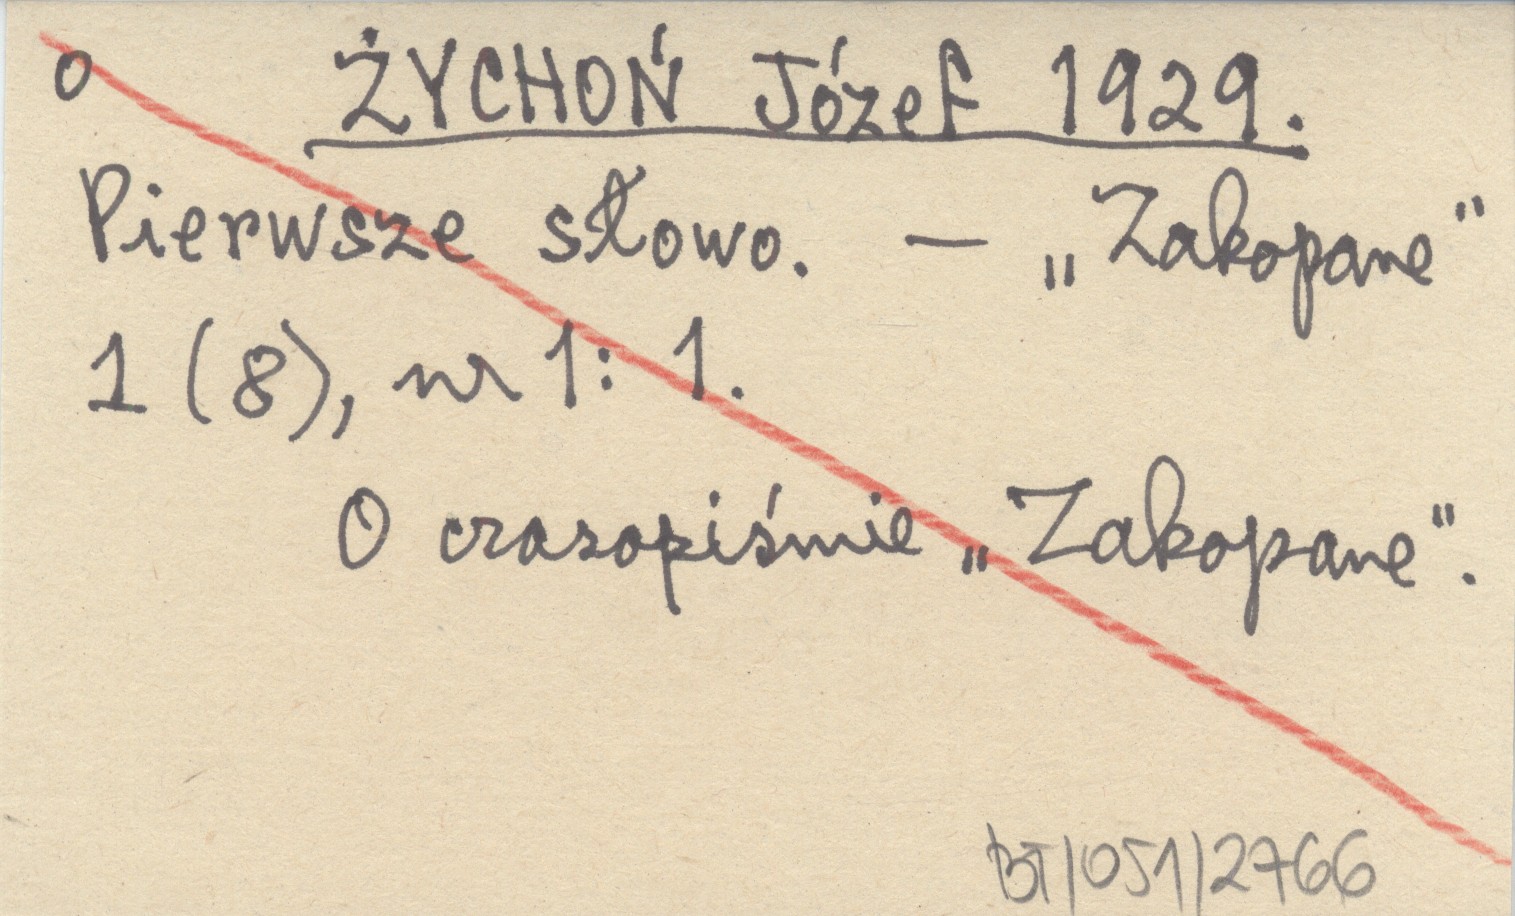 o ŻYCHOŃ Józef 1929.
Pierwsze słowo. — „Zakopane"
1 (8), nr 1: 1.
O czasopiśmie „Zakopane".
BT/051/2766